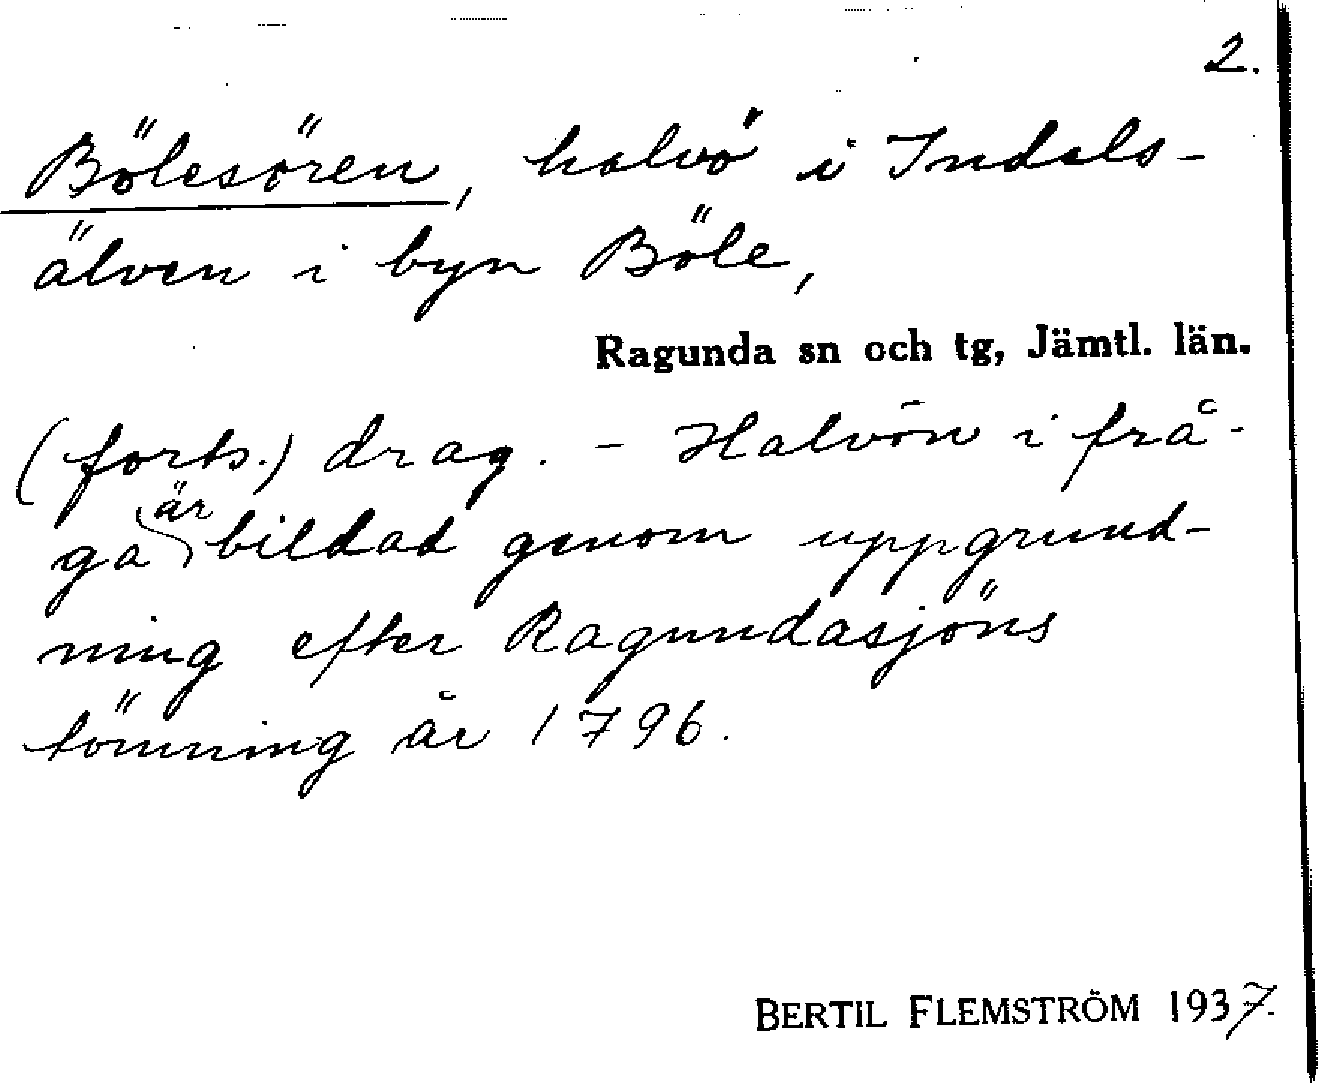 2.
Bölesören, halvö i Indals-
älven i byn Böle,
Ragunda sn och tg, Jämtl. län.
(forts.) drag. - Halvön i frå-
ga är bildad genom uppgrund-
ning efter Ragundasjöns
tömning år 1796.
BERTIL FLEMSTRÖM 1937.